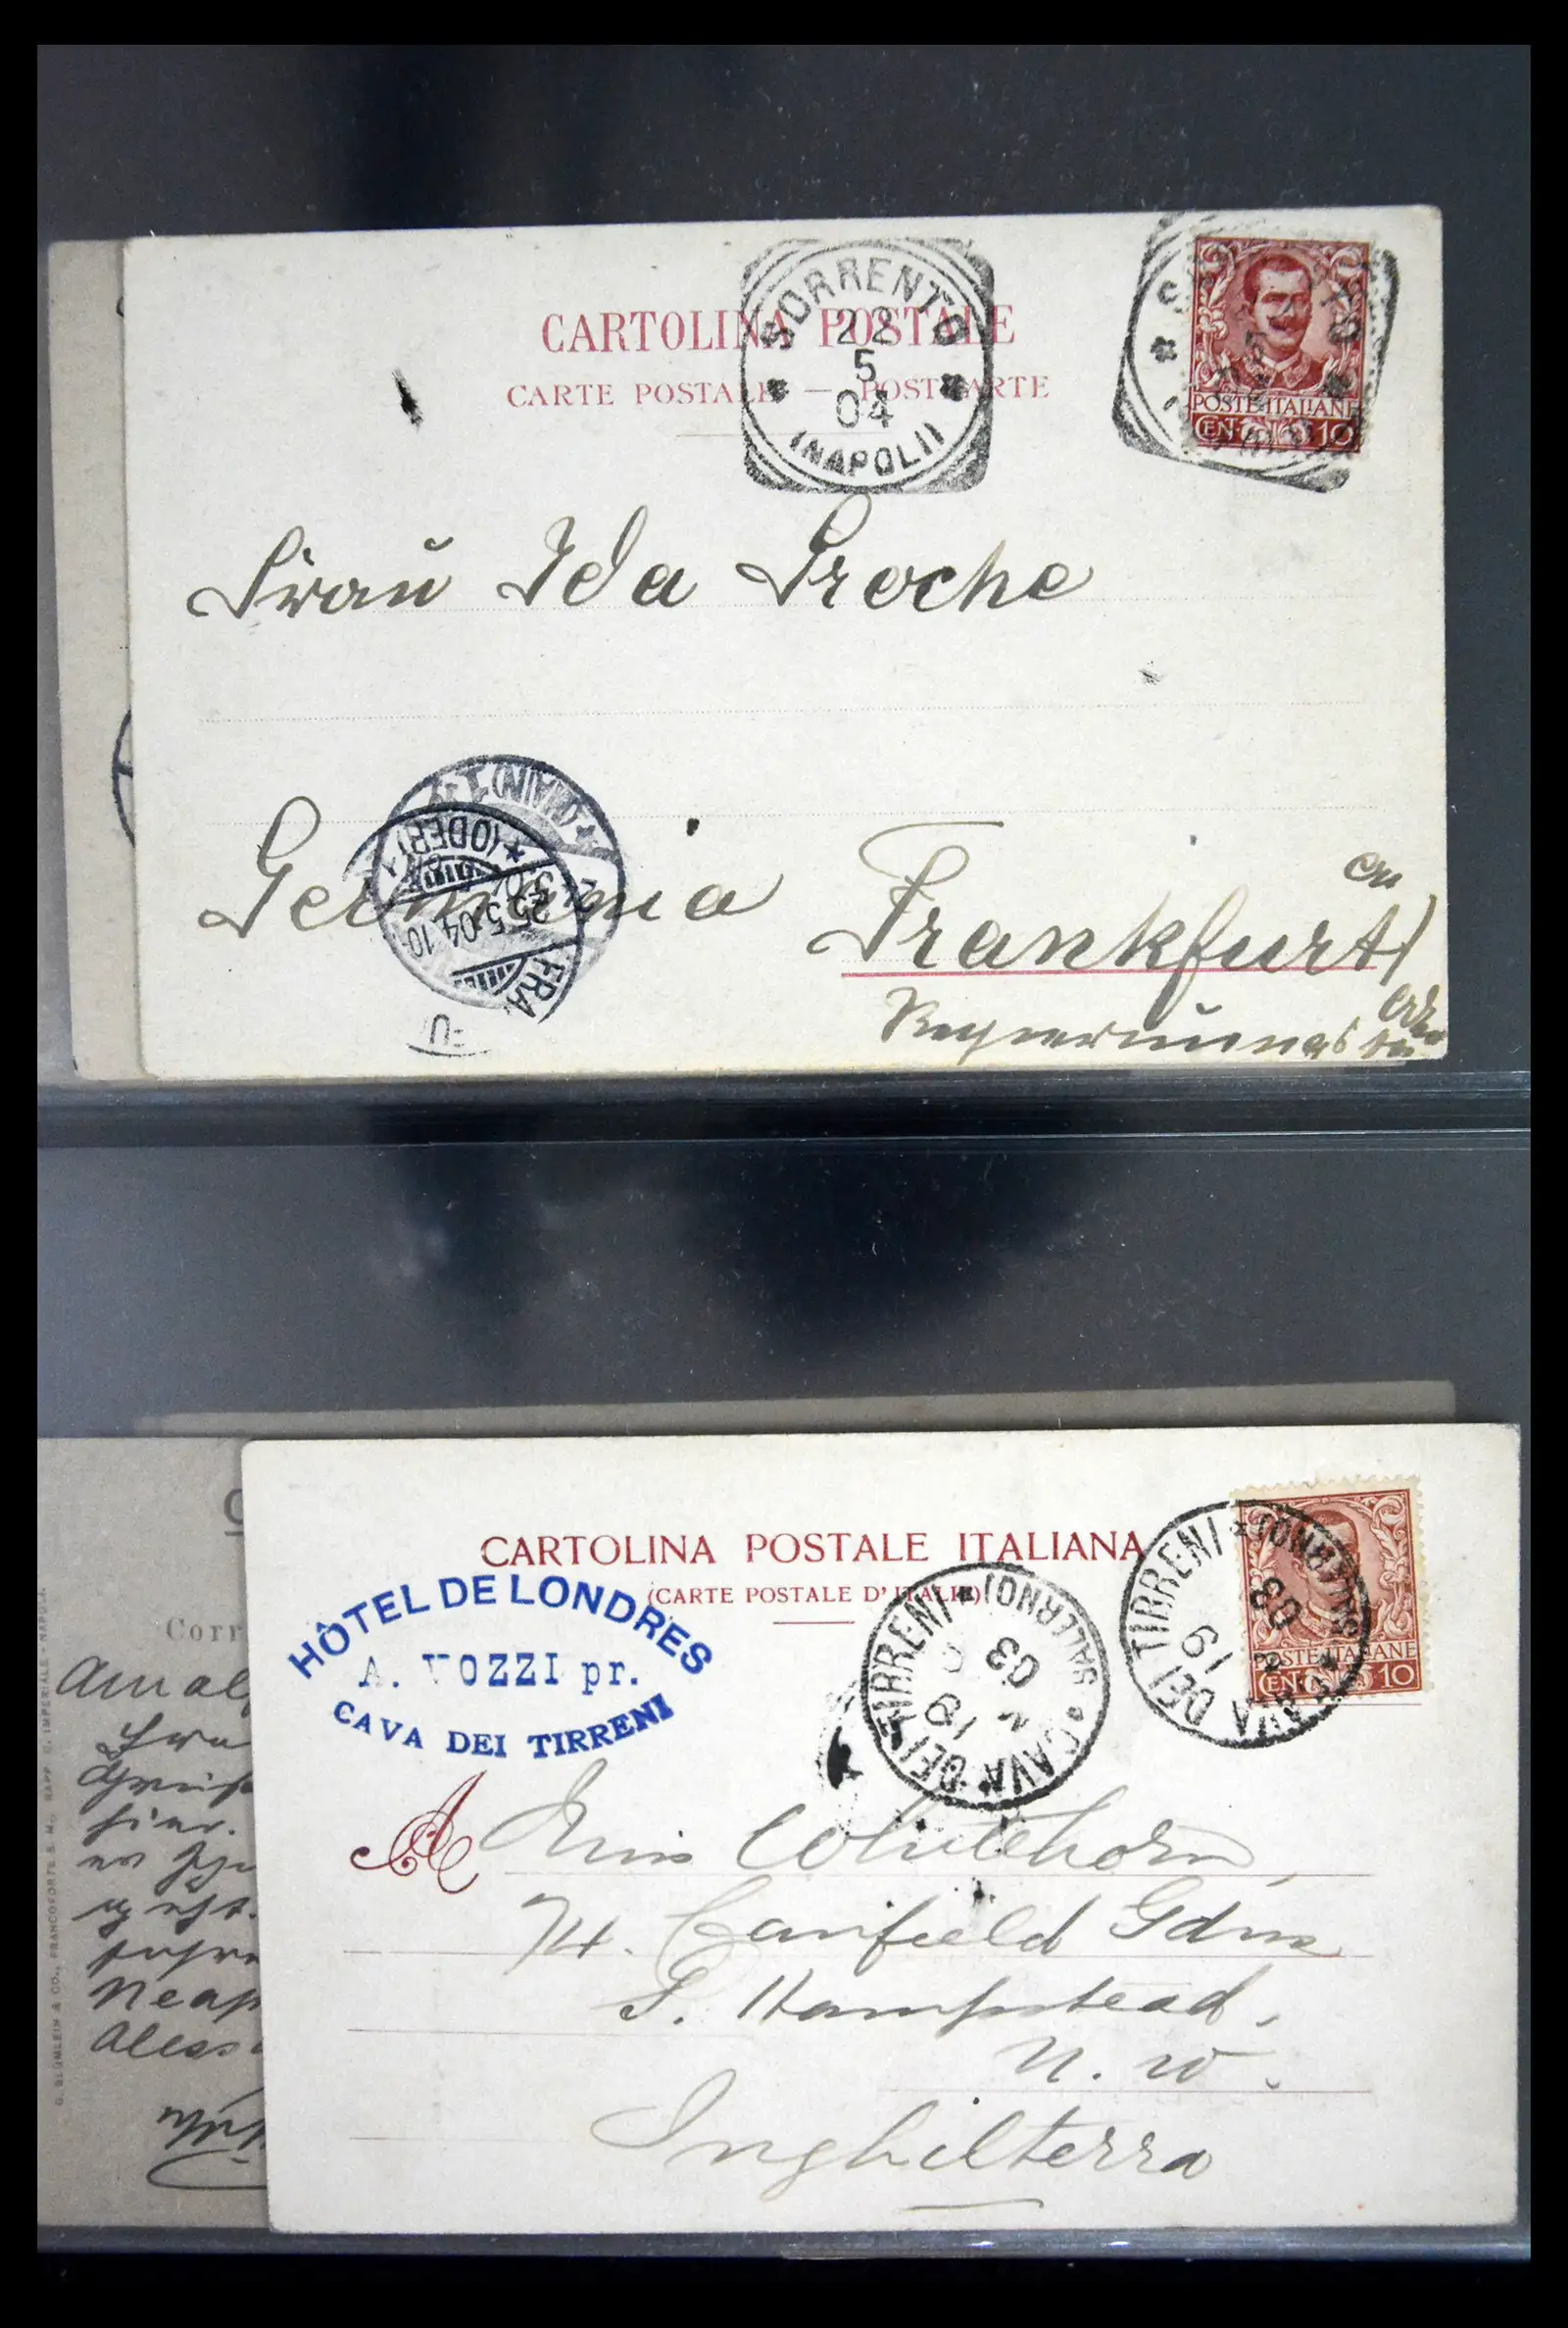 CARTOLINA POSTALE
CARTE POSTALE — POSTKARTE
SORRENTO
22
5
04
(NAPOLI)
POSTE ITALIANE
CEN. 10
Frau Ida Proche
Germania
Frankfurt
(MAIN) 1
(ODER)
25.5.04.10-
FRA
CARTOLINA POSTALE ITALIANA
(CARTE POSTALE D'ITALIE)
HÔTEL DE LONDRES
A. VOZZI pr.
CAVA DEI TIRRENI
CAVA DEI TIRRENI * (SALERNO)
19
03
CAVA DEI TIRRENI * (SALERNO)
19
03
POSTE ITALIANE
CEN. 10
A Miss Whitehorn,
74. Canfield Gdns
S. Hampstead,
N. W.
Inghilterra
Corr
Amal
Neap
Aless
G. BLÜMLEIN & CO., FRANCOFORTE S. M., RAPP. C. IMPERIALE - NAPOLI.